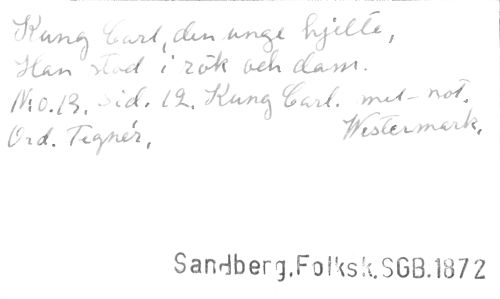 Kung Carl, den unge hjelte,
Han stod i rök och dam.
N:o. 13. sid. 12. Kung Carl. met-not.
Ord. Tegnér. Westermark.
Sandberg.Folksk.SGB.1872